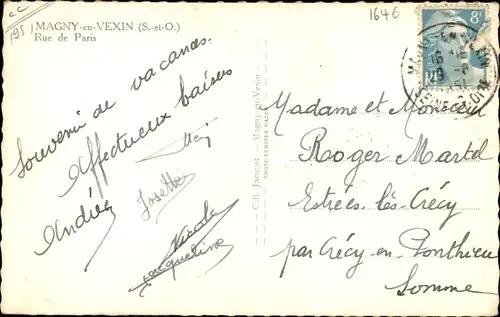 cc
1951
1646
MAGNY-en-VEXIN (S.-et-O.)
Rue de Paris
8F
Souvenir de vacances.
Affectueux baisers
Andrée
Josette
Nicole
Jacqueline
Edit. Jacquet - Magny-en-Vexin
Madame et Monsieur
Roger Martel
Estrées lès Crécy
par Crécy-en-Ponthieu
Somme